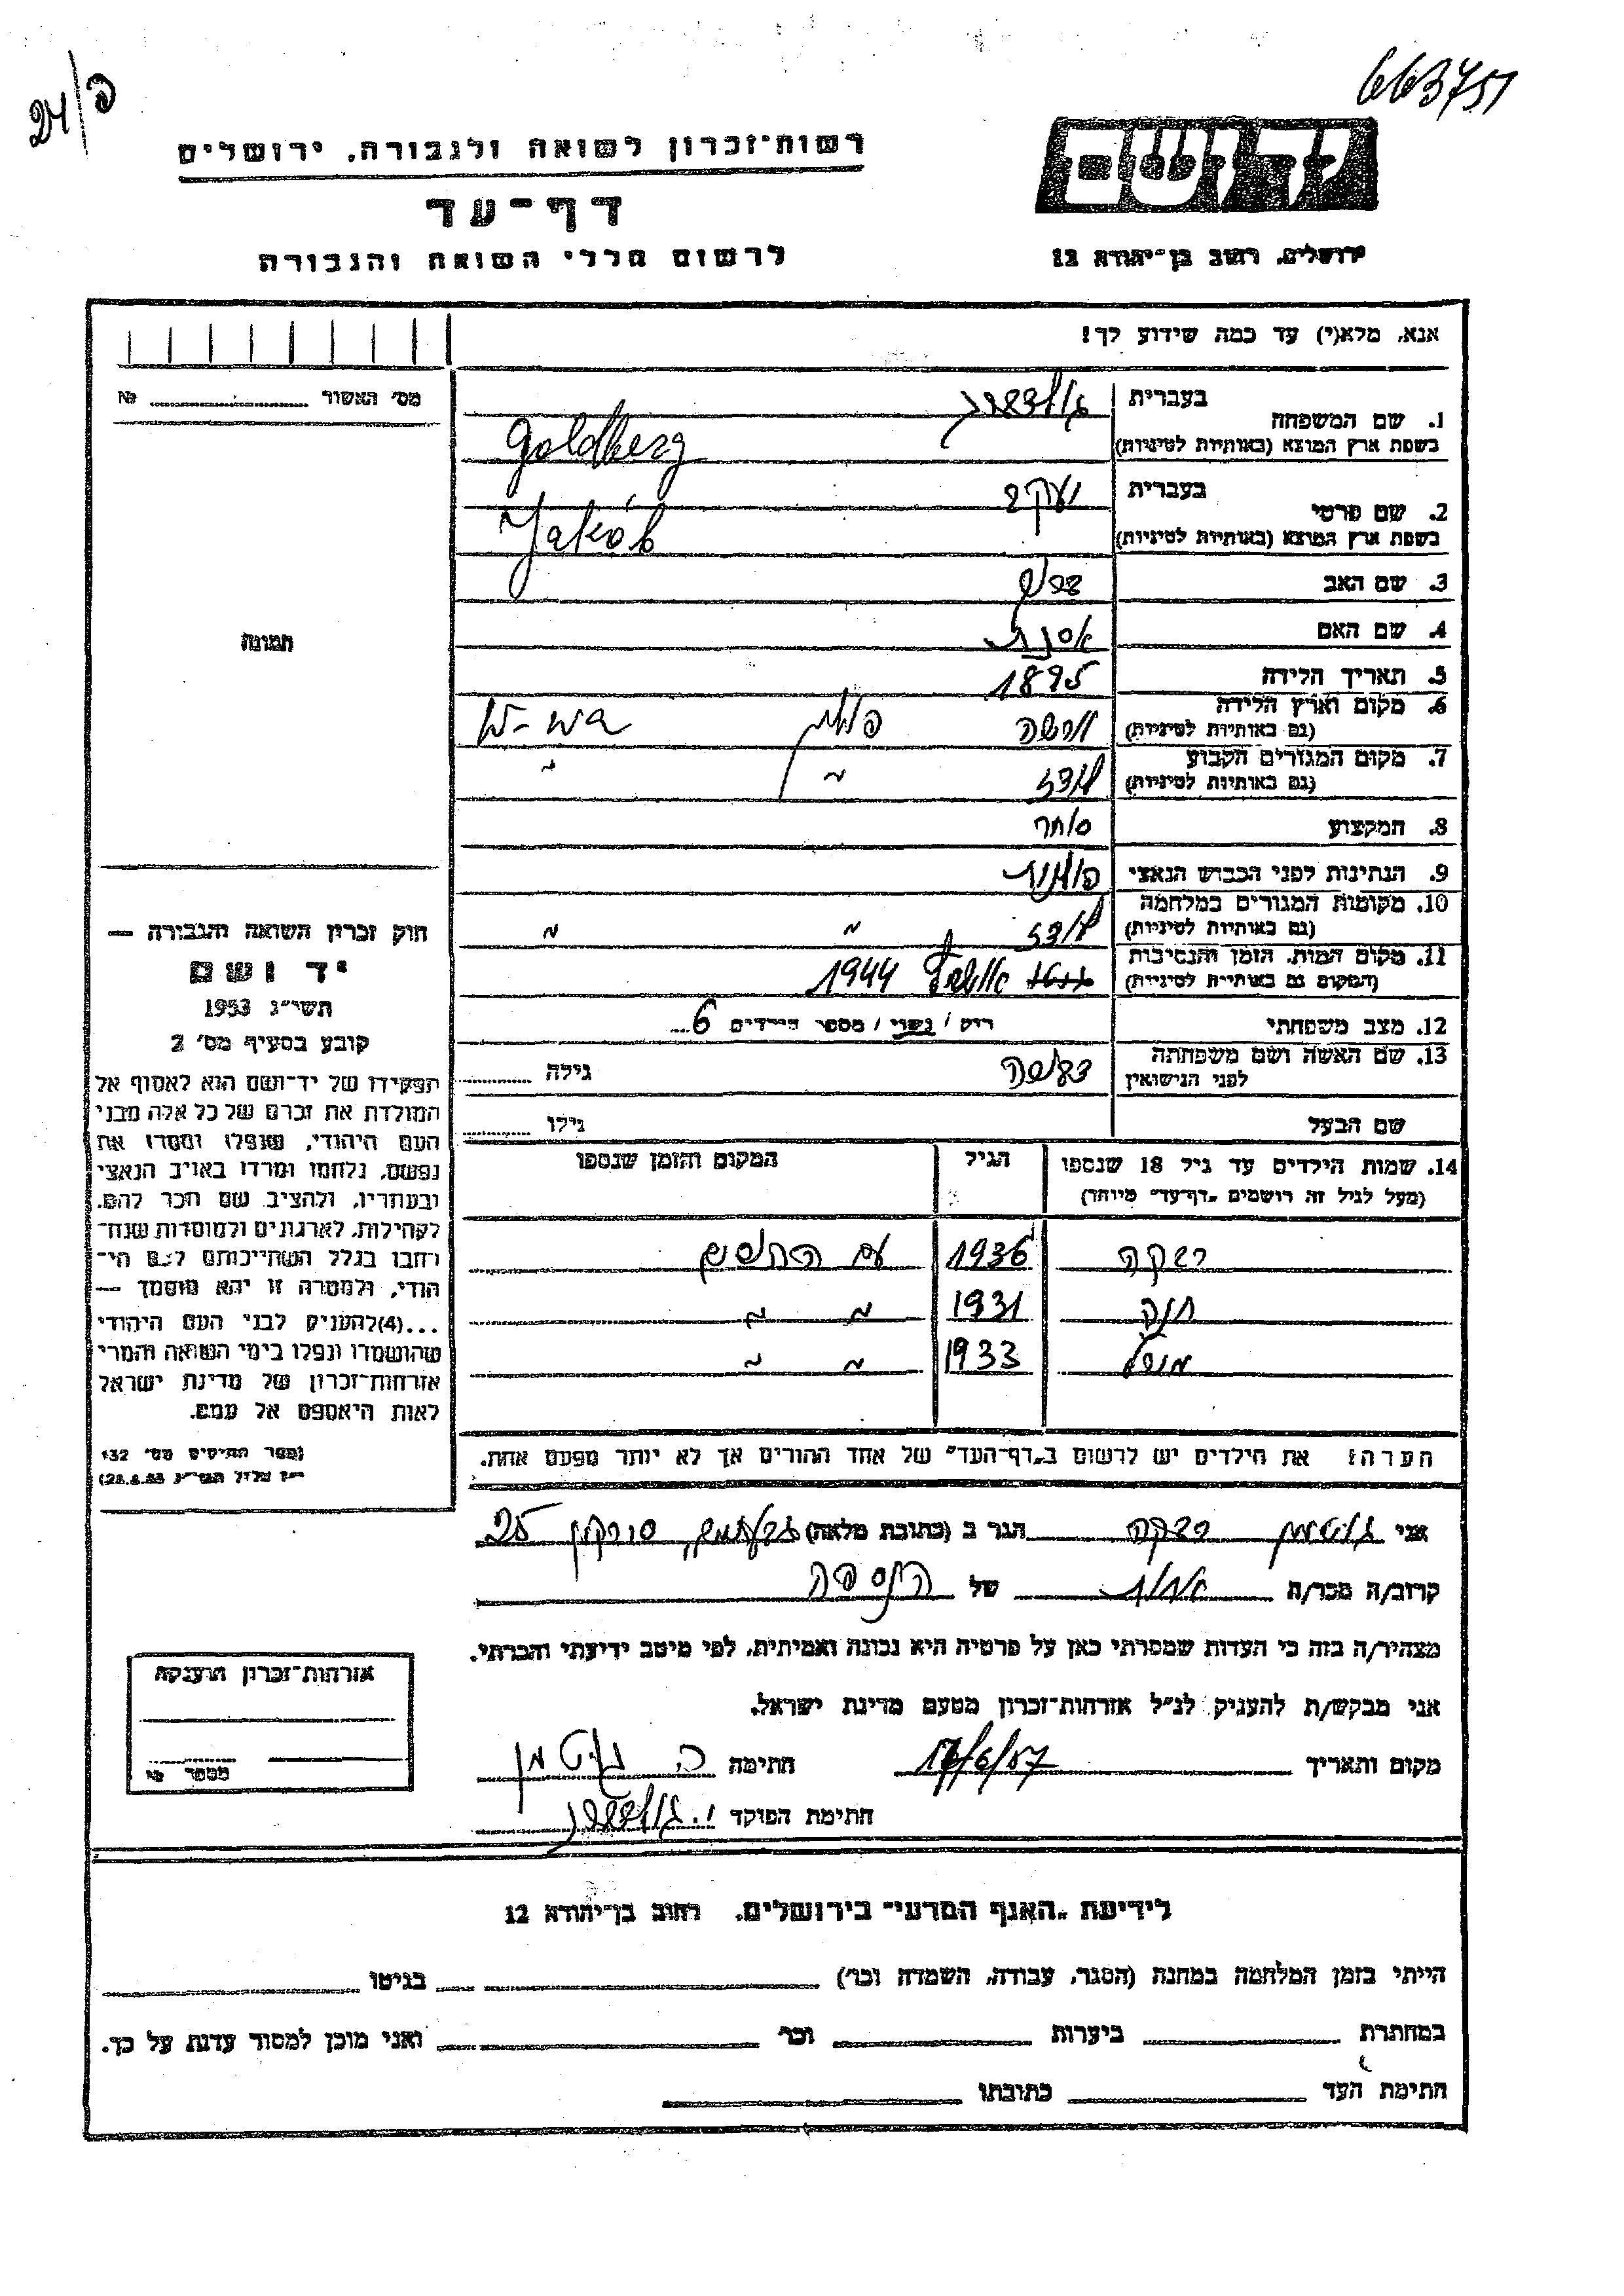 663751
24/פ
רשות־זכרון לשואה ולגבורה, ירושלים
דף־עד
לרשום חללי השואה והגבורה
יד ושם
ירושלים, רחוב בן־יהודה 12
אנא, מלא(י) עד כמה שידוע לך!
מס׳ האשור № 
1. שם המשפחה בעברית גולדברג
בשפת ארץ המוצא (באותיות לטיניות) Goldberg
2. שם פרטי בעברית יעקב
בשפת ארץ המוצא (באותיות לטיניות) Jakób
3. שם האב
4. שם האם אסנת
5. תאריך הלידה 1895
6. מקום וארץ הלידה (גם באותיות לטיניות) ורשה פולין
7. מקום המגורים הקבוע (גם באותיות לטיניות) לודז׳ " "
8. המקצוע סוחר
9. הנתינות לפני הכבוש הנאצי פולנית
10. מקומות המגורים במלחמה (גם באותיות לטיניות) לודז׳ " "
11. מקום המות, הזמן והנסיבות (המקום גם באותיות לטיניות) אושביץ 1944
12. מצב משפחתי רוק / נשוי / מספר הילדים 6
13. שם האשה ושם משפחתה לפני הנישואין גילה
שם הבעל גילו
14. שמות הילדים עד גיל 18 שנספו
(מעל לגיל זה רושמים "דף־עד" מיוחד)
הגיל
המקום והזמן שנספו
רבקה 1936 עם
חנה 1931 " "
1933 " "
הערה: את הילדים יש לרשום ב"דף־העד" של אחד ההורים אך לא יותר מפעם אחת.
תמונה
חוק זכרון השואה והגבורה —
יד ושם
תשי״ג 1953
קובע בסעיף מס׳ 2
תפקידו של יד־ושם הוא לאסוף אל
המולדת את זכרם של כל אלה מבני
העם היהודי, שנפלו ומסרו את
נפשם, נלחמו ומרדו באויב הנאצי
ובעוזריו, ולהציב שם וזכר להם,
לקהילות, לארגונים ולמוסדות שנח־
רבו בגלל השתייכותם לעם הי־
הודי, ולמטרה זו יהא מוסמך —
...(4) להעניק לבני העם היהודי
שהושמדו ונפלו בימי השואה והמרי
אזרחות־זכרון של מדינת ישראל
לאות היאספם אל עמם.
(ספר החוקים מס׳ 132
י״ז אלול תשי״ג 28.8.53)
אני גוטמן רבקה הגר ב (כתובת מלאה) גבעתיים, סירקין 25
קרוב/ה מכר/ה אחות של הנספה
מצהיר/ה בזה כי העדות שמסרתי כאן על פרטיה היא נכונה ואמיתית, לפי מיטב ידיעתי והכרתי.
אני מבקש/ת להעניק לנ״ל אזרחות־זכרון מטעם מדינת ישראל.
מקום ותאריך 17/6/57 חתימה ר. גוטמן
חתימת הפוקד י. גולדברג
אזרחות־זכרון הוענקה
מספר
לידיעת "האגף המדעי" בירושלים, רחוב בן־יהודה 12
הייתי בזמן המלחמה במחנה (הסגר, עבודה, השמדה וכו׳) בגיטו
במחתרת ביערות וכו׳ ואני מוכן למסור עדות על כך.
חתימת העד כתובתו